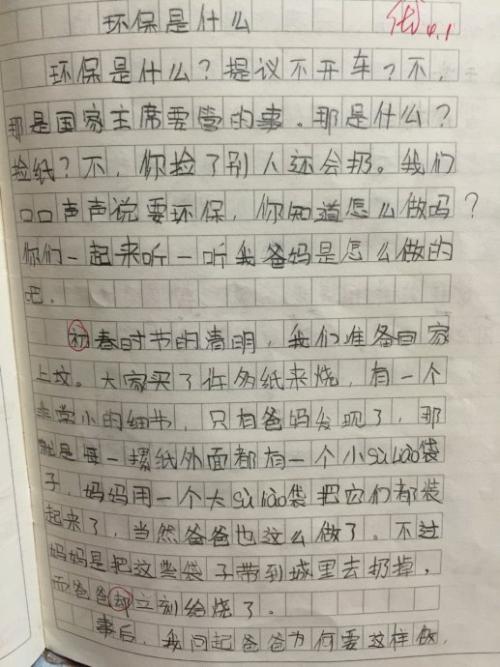 环保是什么
优 4.1
环保是什么？提议不开车？不，
那是国家主席要管的事。那是什么？
捡纸？不，你捡了别人还会扔。我们
口口声声说要环保，你知道怎么做吗？
你们一起来听一听我爸妈是怎么做的
吧。
初春时节的清明，我们准备回家
上坟。大家买了许多纸来烧，有一个
非常小的细节，只有爸妈发现了，那
就是每一摞纸外面都有一个小sù liào袋
子，妈妈用一个大sù liào袋把它们都装
起来了，当然爸爸也这么做了。不过
妈妈是把这些袋子带到城里去扔掉，
而爸爸却立刻给烧了。
事后，我问起爸爸为何要这样做，